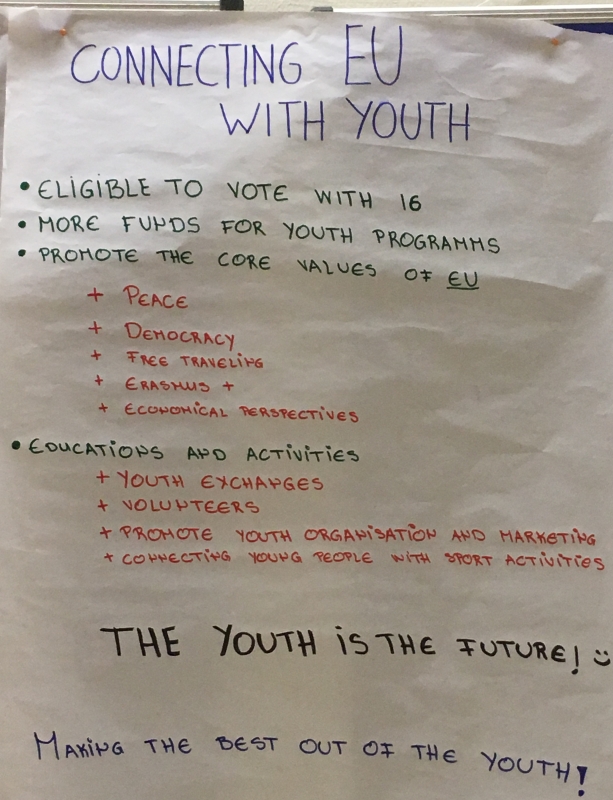 CONNECTING EU
WITH YOUTH
• ELIGIBLE TO VOTE WITH 16
• MORE FUNDS FOR YOUTH PROGRAMMS
• PROMOTE THE CORE VALUES OF EU
+ PEACE
+ DEMOCRACY
+ FREE TRAVELING
+ ERASMUS +
+ ECONOMICAL PERSPECTIVES
• EDUCATIONS AND ACTIVITIES
+ YOUTH EXCHANGES
+ VOLUNTEERS
+ PROMOTE YOUTH ORGANISATION AND MARKETING
+ CONNECTING YOUNG PEOPLE WITH SPORT ACTIVITIES
THE YOUTH iS THE FUTURE! :)
MAKING THE BEST OUT OF THE YOUTH!